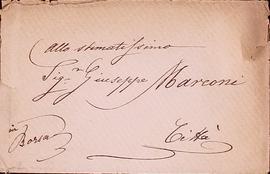 Allo stimatissimo
Sig.r Giuseppe Marconi
Città
in
Borsa